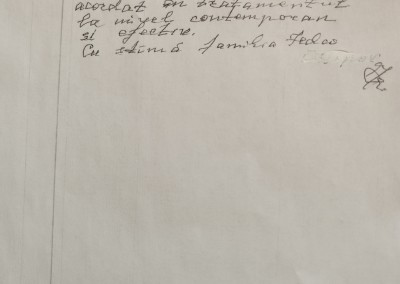 acordat în tratamentul
la nivel contemporan
si efectiv.
Cu stimă familia Fedco